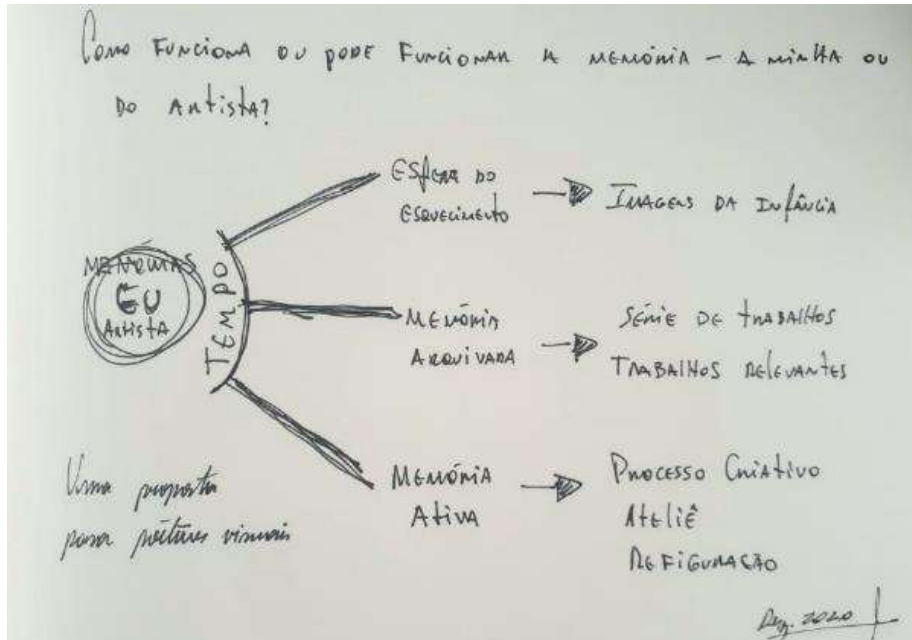 Como funciona ou pode funcionar a memória – a minha ou
do artista?
Esfera do
Esquecimento
Imagens da infância
Memórias
Eu
Artista
Tempo
Memória
Arquivada
Série de trabalhos
Trabalhos relevantes
Memória
Ativa
Processo Criativo
Ateliê
Refiguração
Uma proposta
para poéticas visuais
2020